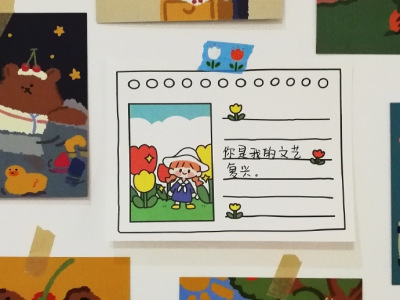 你是我的文艺
复兴。